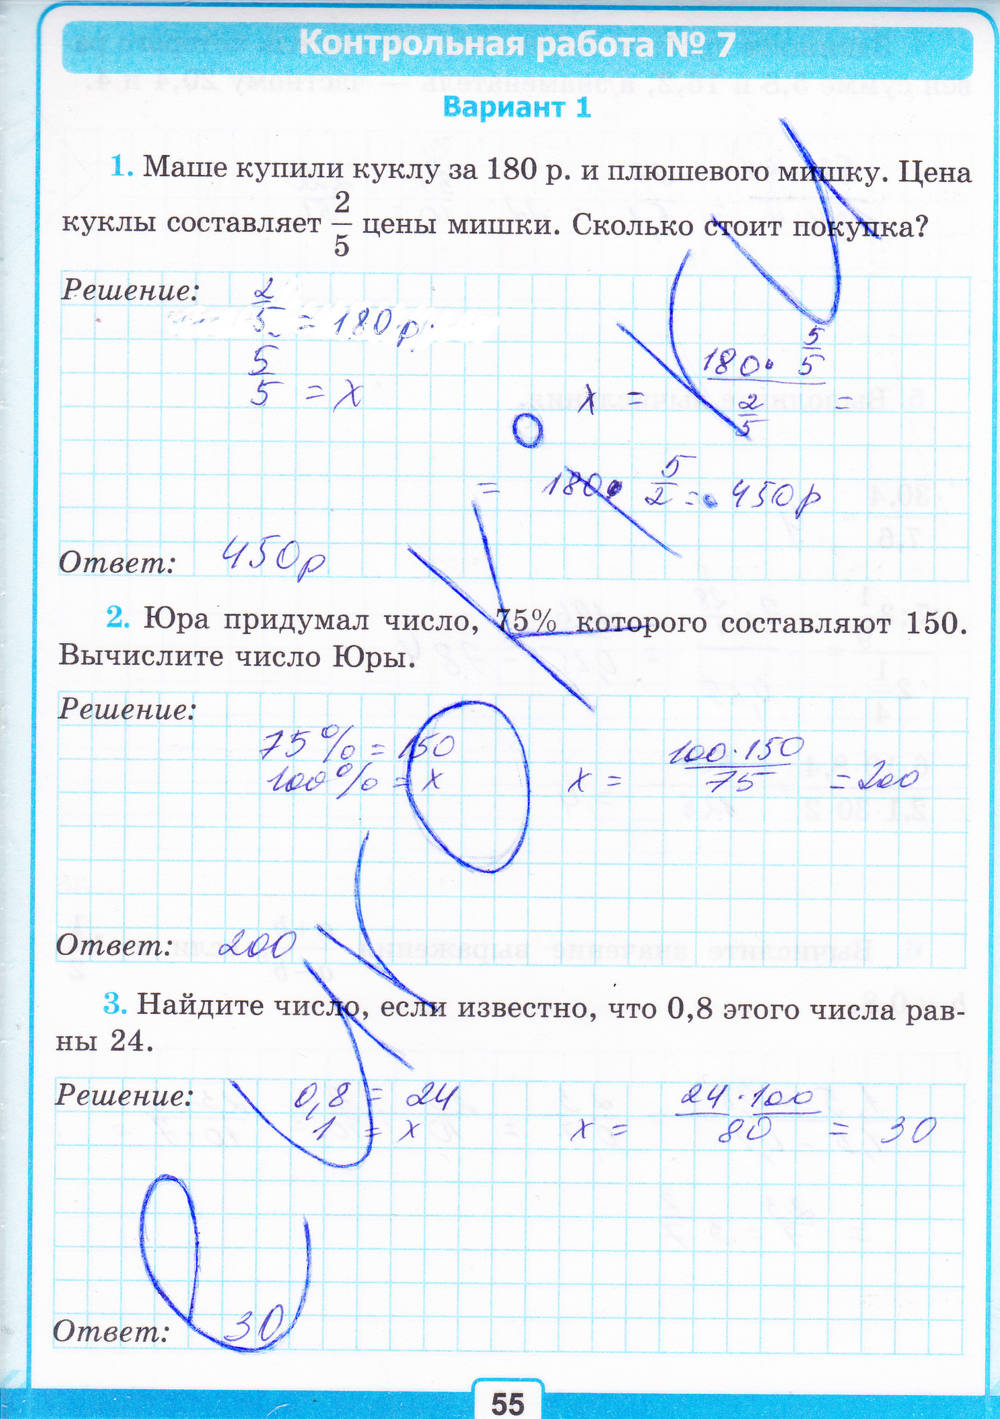 Контрольная работа № 7
Вариант 1
1. Маше купили куклу за 180 р. и плюшевого мишку. Цена
куклы составляет 2/5 цены мишки. Сколько стоит покупка?
Решение:
2/5 = 180 р.
5/5 = х
х = (180 · 5/5) / (2/5) =
= 180 · 5/2 = 450 р
Ответ: 450 р
2. Юра придумал число, 75% которого составляют 150.
Вычислите число Юры.
Решение:
75% = 150
100% = х
х = (100 · 150) / 75 = 200
Ответ: 200
3. Найдите число, если известно, что 0,8 этого числа рав-
ны 24.
Решение:
0,8 = 24
1 = х
х = (24 · 100) / 80 = 30
Ответ: 30
55